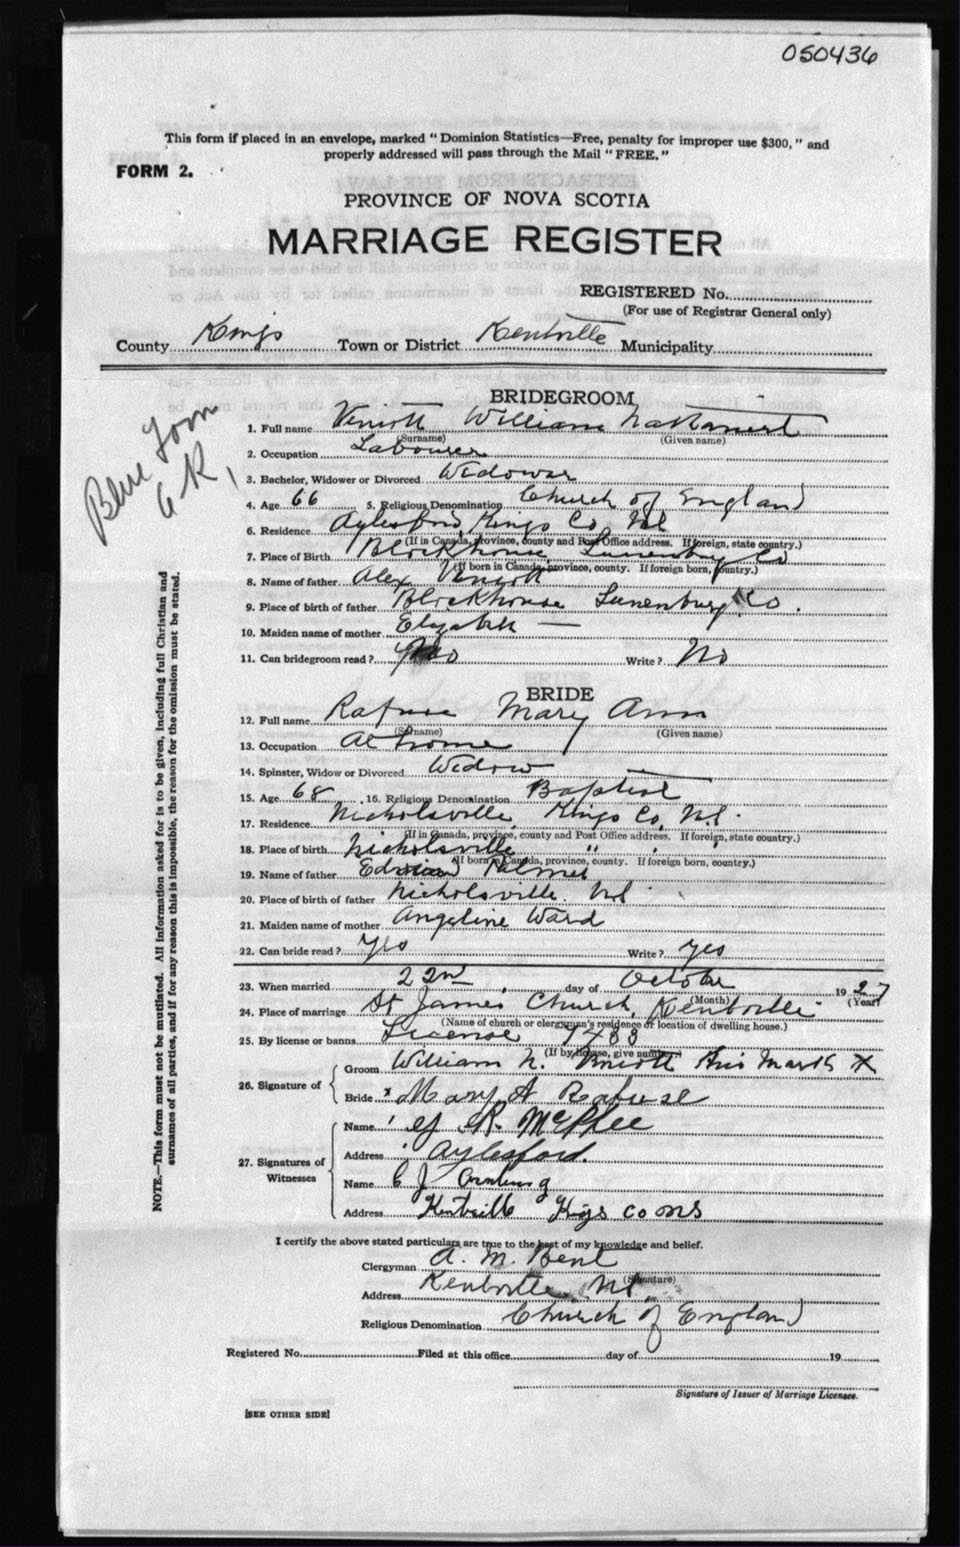 050436
This form if placed in an envelope, marked "Dominion Statistics—Free, penalty for improper use $300," and
properly addressed will pass through the Mail "FREE."
FORM 2.
PROVINCE OF NOVA SCOTIA
MARRIAGE REGISTER
REGISTERED No.
(For use of Registrar General only)
County Kings Town or District Kentville Municipality
Blue Form
BRIDEGROOM
1. Full name Veniott William Nathaniel
(Surname) (Given name)
2. Occupation Labourer
3. Bachelor, Widower or Divorced Widower
4. Age 66 5. Religious Denomination Church of England
6. Residence Aylesford Kings Co NS
(If in Canada, province, county and Post Office address. If foreign, state country.)
7. Place of Birth Blockhouse Lunenburg Co
(If born in Canada, province, county. If foreign born, country.)
8. Name of father Alex Veniott
9. Place of birth of father Blockhouse Lunenburg Co.
10. Maiden name of mother Elizabeth —
11. Can bridegroom read? No Write? No
BRIDE
12. Full name Rafuse Mary Ann
(Surname) (Given name)
13. Occupation At home
14. Spinster, Widow or Divorced Widow
15. Age 68 16. Religious Denomination Baptist
17. Residence Nicholsville, Kings Co, N.S.
(If in Canada, province, county and Post Office address. If foreign, state country.)
18. Place of birth Nicholsville " " "
(If born in Canada, province, county. If foreign born, country.)
19. Name of father Palmer
20. Place of birth of father Nicholsville NS
21. Maiden name of mother Angeline Ward
22. Can bride read? Yes Write? Yes
23. When married 22nd day of October 1927
(Month) (Year)
24. Place of marriage St James Church, Kentville
(Name of church or clergyman's residence or location of dwelling house.)
25. By license or banns License 7488
(If by license, give number)
26. Signature of Groom William N. Veniott His Mark X
Bride x Mary A Rafuse
27. Signatures of Witnesses
Name R. McPhee
Address Aylesford.
Name C J
Address Kentville Kings Co NS
I certify the above stated particulars are true to the best of my knowledge and belief.
Clergyman A. M. Bent
(Signature)
Address Kentville NS
Religious Denomination Church of England
Registered No. Filed at this office day of 19
Signature of Issuer of Marriage Licenses.
[SEE OTHER SIDE]
NOTE.—This form must not be mutilated. All information asked for is to be given, including full Christian and
surnames of all parties, and if for any reason this is impossible, the reason for the omission must be stated.